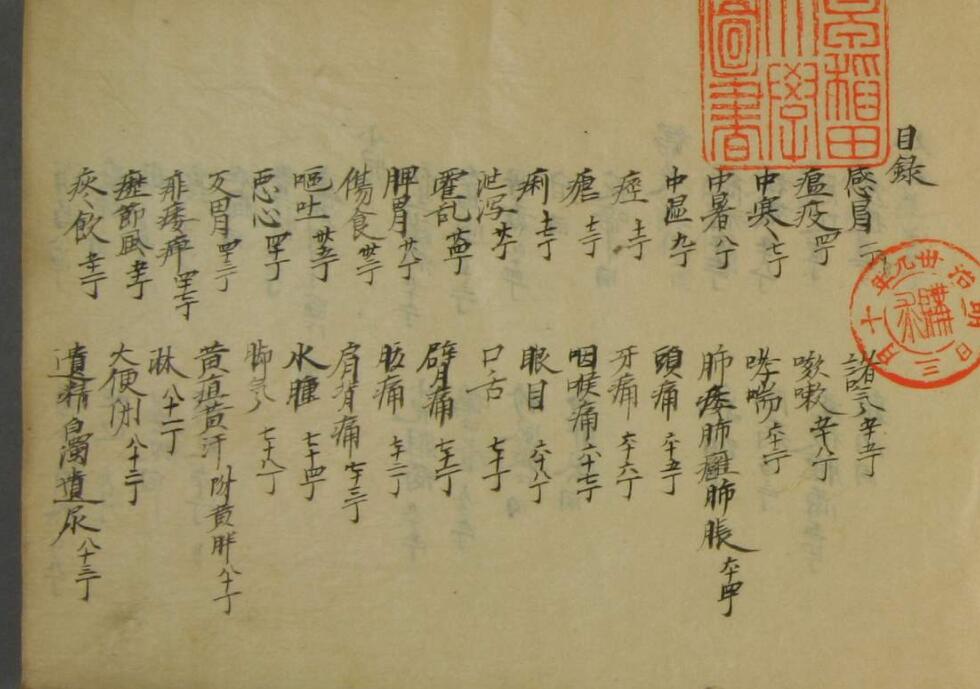 早稲田
大學
圖書
明治卅九年十月三日
購求
目録
感冒 二丁
瘟疫 四丁
中寒 七丁
中暑 八丁
中湿 九丁
痙 十丁
瘧
痢 十七丁
泄瀉
霍乱
脾胃 廿八丁
傷食 卅二丁
嘔吐 卅五丁
悪心 四十丁
反胃 四十二丁
痱痿痺 四十七丁
歴節風
痰飲
諸気 五十五丁
咳嗽 五十八丁
哮喘 六十二丁
肺痿肺癰肺脹 六十四丁
頭痛 六十五丁
牙痛 六十六丁
咽喉痛 六十七丁
眼目 六十八丁
口舌 七十丁
臂痛 七十一丁
肱痛 七十二丁
肩背痛 七十三丁
水腫 七十四丁
脚気 七十八丁
黄疸黄汗 附黄胖 八十丁
淋 八十一丁
大便閉 八十二丁
遺精白濁遺尿 八十三丁